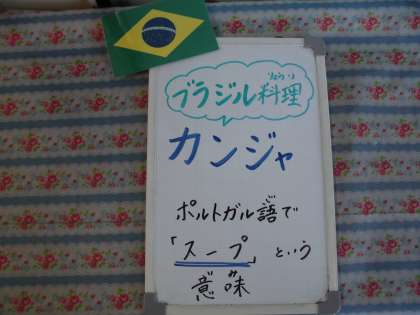 ブラジル料理
カンジャ
ポルトガル語で
「スープ」という
意味